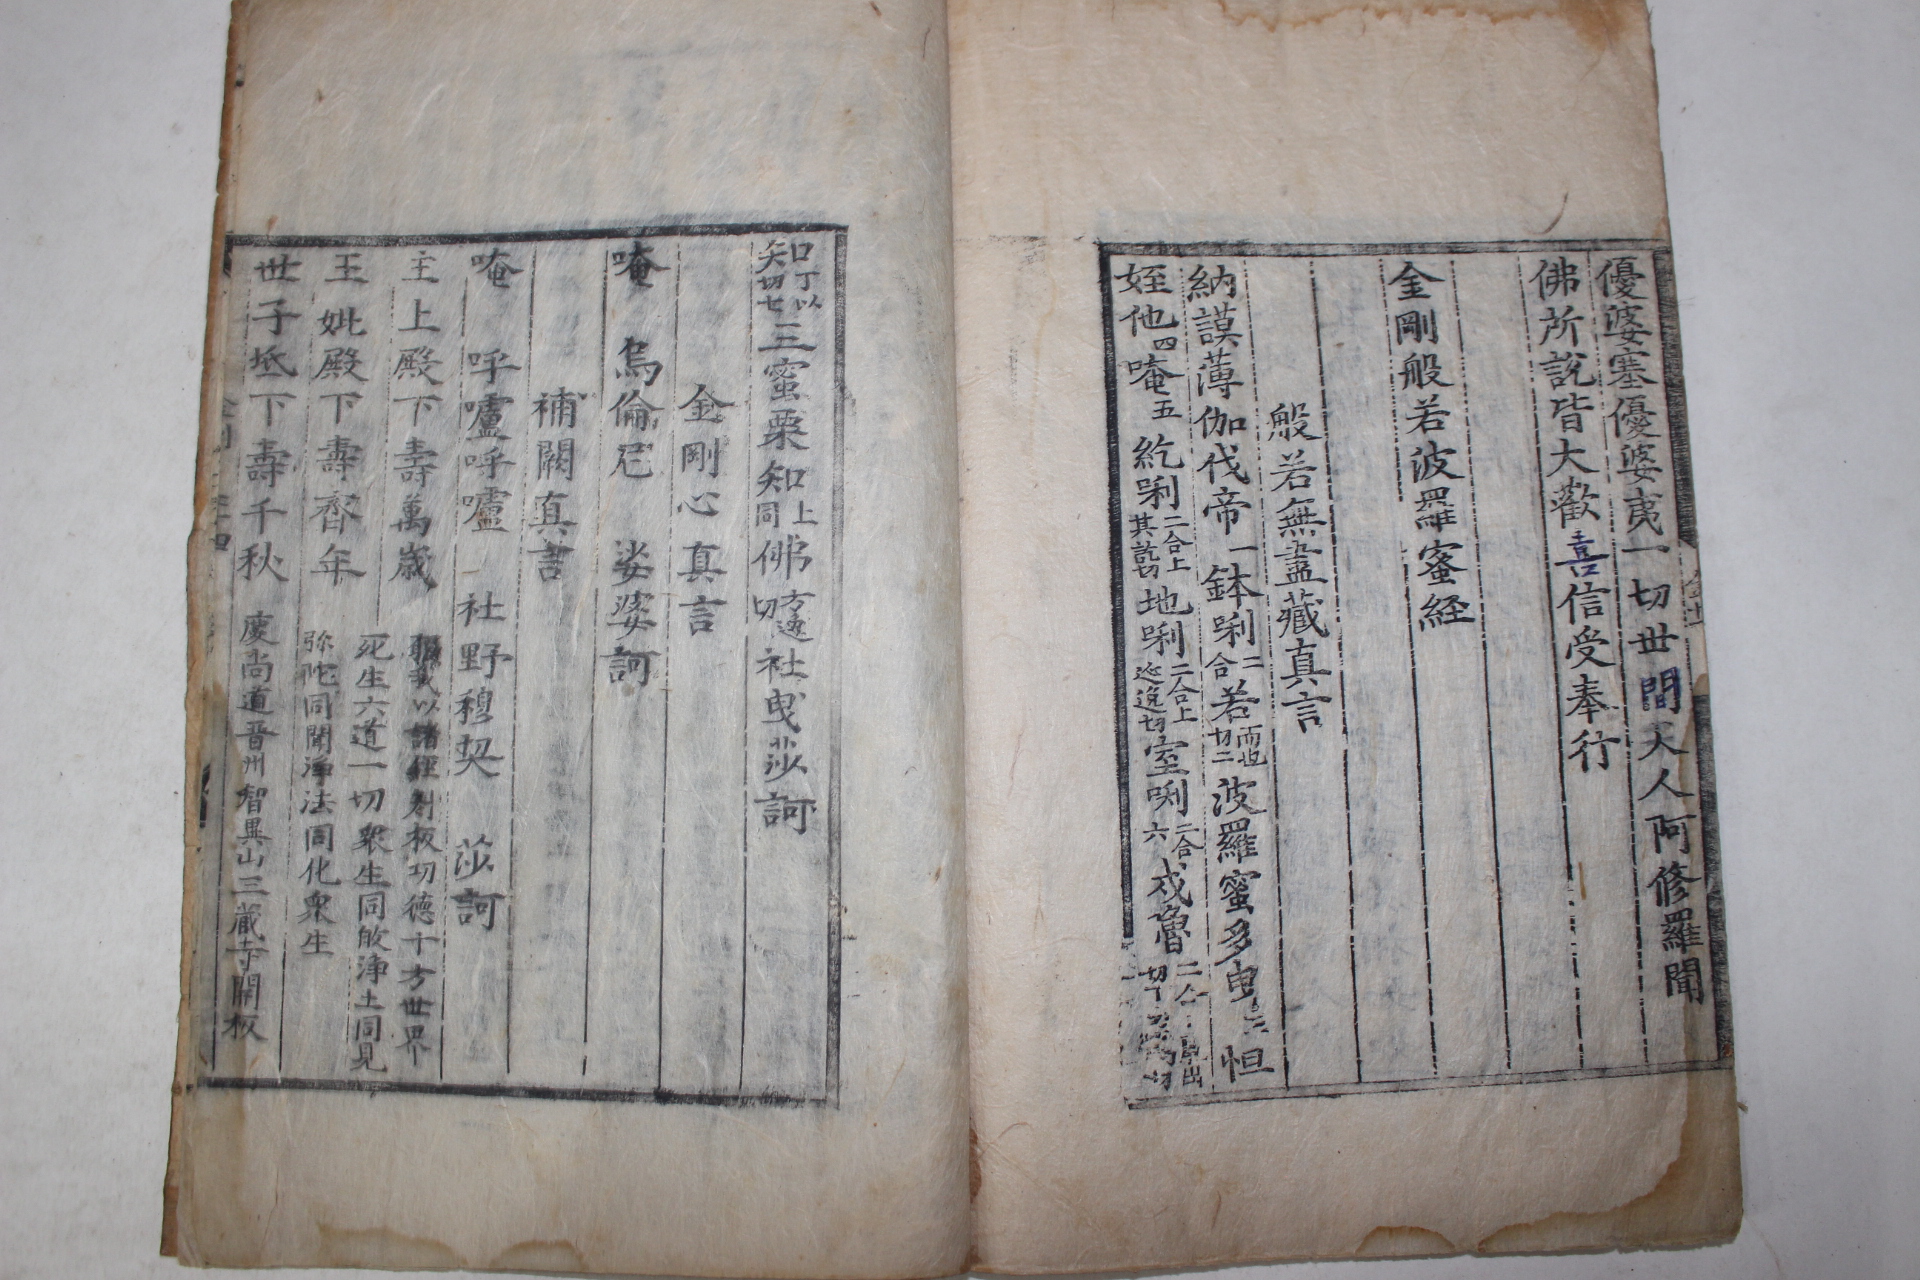 優婆塞優婆夷一切世間天人阿修羅聞
佛所說皆大歡喜信受奉行
金剛般若波羅蜜経
般若無盡藏真言
納謨薄伽伐帝一鉢唎二合若而也切二波羅蜜多曳三怛
姪他四唵五紇唎二合上其訖切地唎二合上
室唎二合六戍嚕二合
三蜜栗知上同佛切社曳莎訶
金剛心真言
唵 烏倫尼 娑婆訶
補闕真言
唵 呼嚧呼嚧 社野穆契 莎訶
主上殿下壽萬歲 以諸經刻板功德十方世界
王妣殿下壽齊年 死生六道一切衆生同敀淨土同見
弥陀同聞淨法同化衆生
世子邸下壽千秋 慶尚道晋州智異山三蔵寺開板